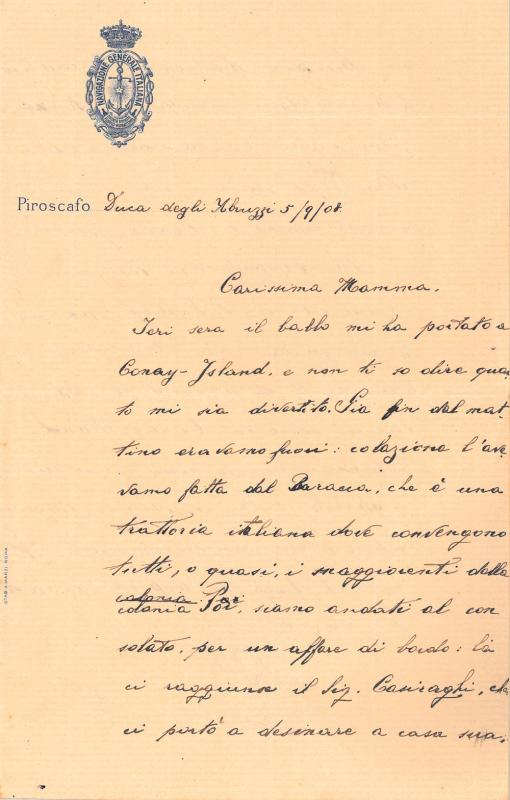 NAVIGAZIONE GENERALE ITALIANA
Piroscafo Duca degli Abruzzi 5/9/08.
Carissima Mamma.
Ieri sera il babbo mi ha portato a
Conay-Island, e non ti so dire quan-
to mi sia divertito. Già fin dal mat-
tino eravamo fuori: colazione l'ave-
vamo fatta dal Baracca, che è una
trattoria italiana dove convengono
tutti, o quasi, i maggiorenti della
colonia Poi
colonia Poi, siamo andati al con
solato, per un affare di bordo: là
ci raggiunse il Sig. Casiraghi, che
ci portò a desinare a casa sua,